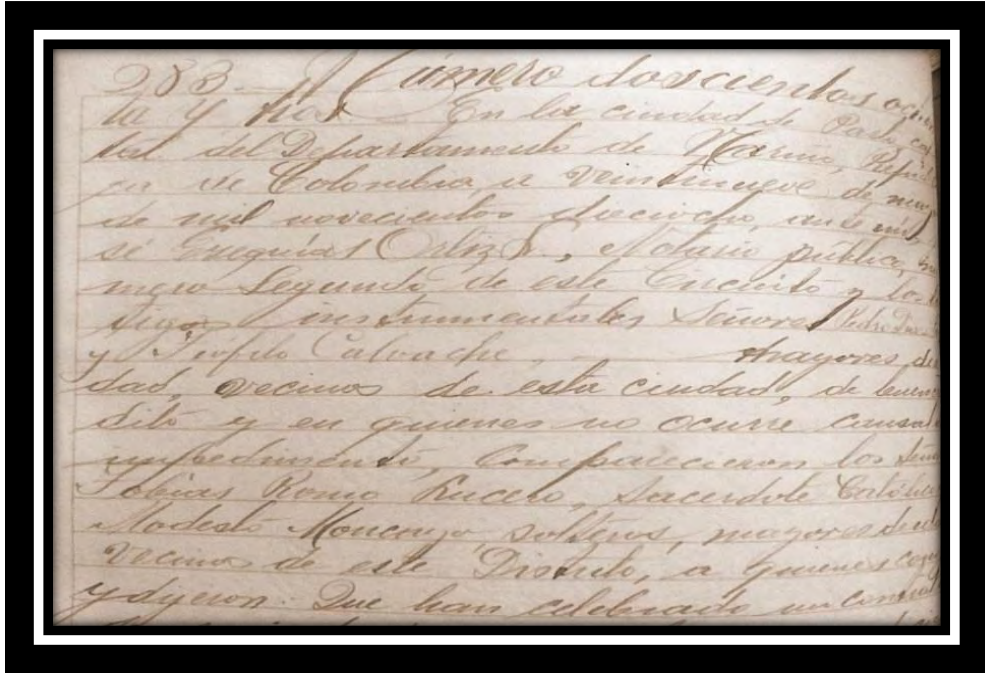 283. Número doscientos
ta y tres En la ciudad de Pasto,
tal del Departamento de Nariño,
de Colombia, a veintinueve de
de mil novecientos dieciocho, ante mí
sé Ezequías Ortiz R., Notario público,
mero Segundo de este Circuito y los
tigos instrumentales Señores Pedro
y Teófilo Calvache, mayores de
dad, vecinos de esta ciudad, de buen
dito y en quienes no ocurre causal
impedimento, Comparecieron los
Tobias Romo Lucero, Sacerdote Católico
Modesto Moncayo solteros, mayores de
vecinos de este Distrito, a quienes
y dijeron: Que han celebrado un